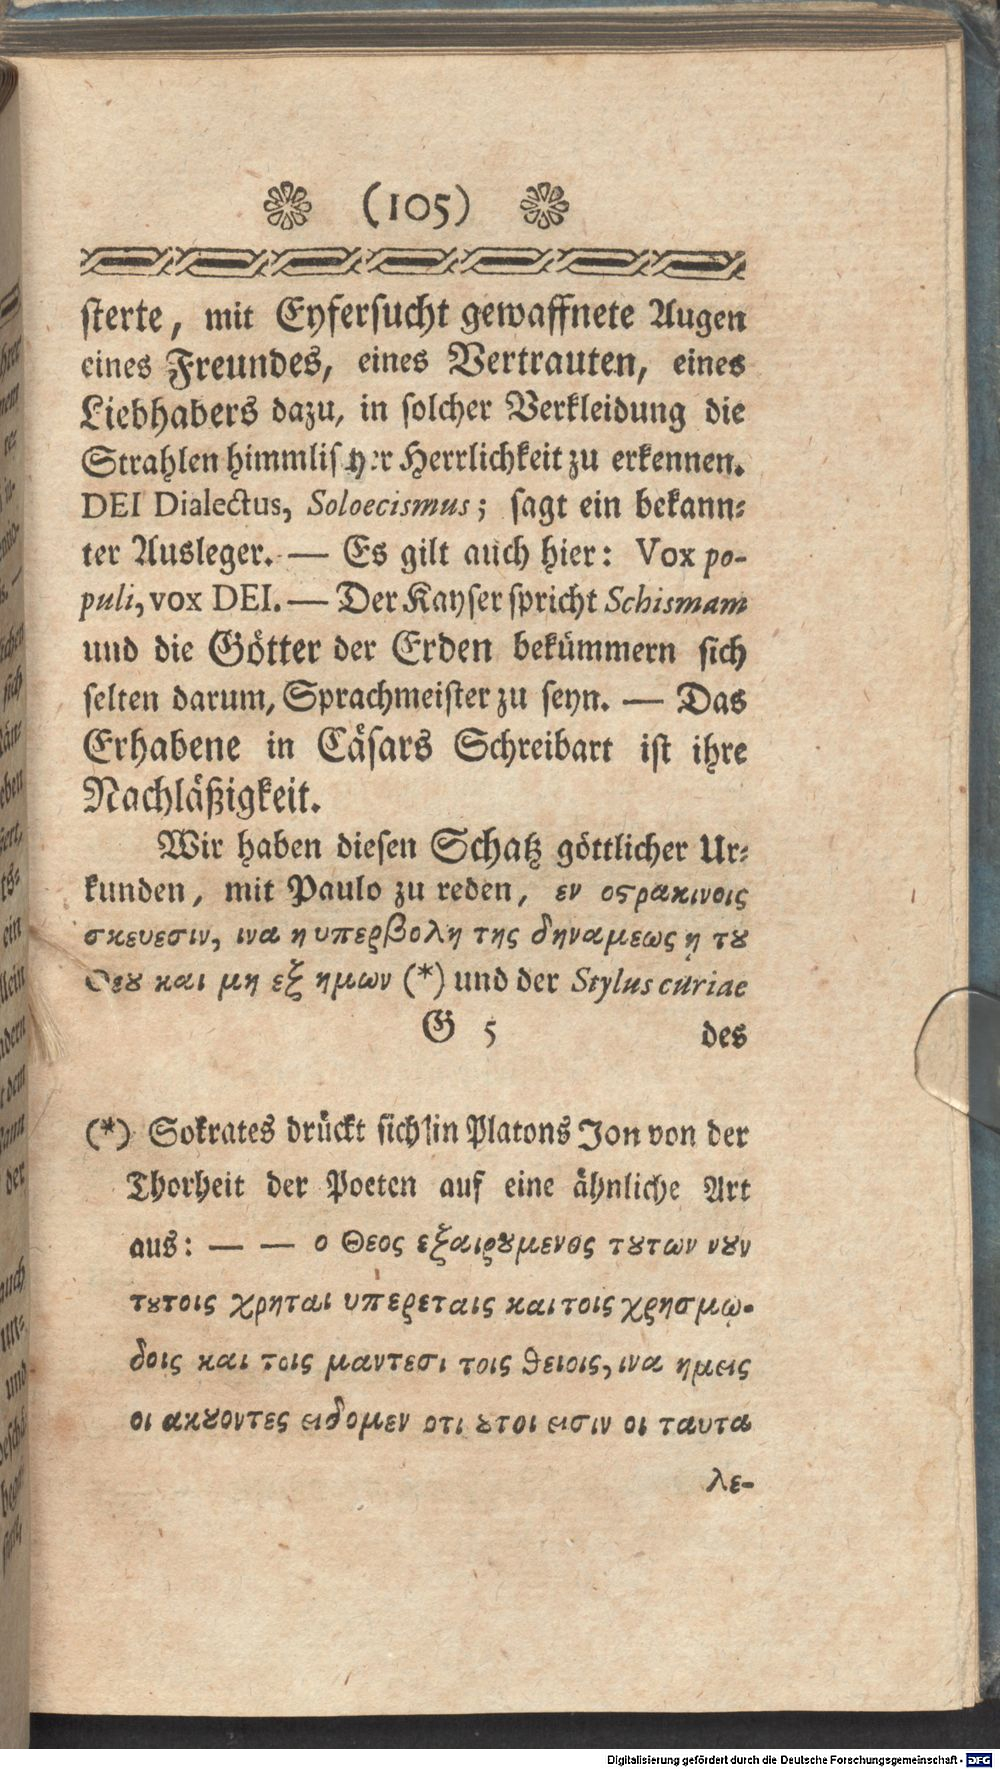 (105)
sterte, mit Eyfersucht gewaffnete Augen
eines Freundes, eines Vertrauten, eines
Liebhabers dazu, in solcher Verkleidung die
Strahlen himmlischer Herrlichkeit zu erkennen.
DEI Dialectus, Soloecismus; sagt ein bekann-
ter Ausleger. — Es gilt auch hier: Vox po-
puli, vox DEI. — Der Kayser spricht Schismam
und die Götter der Erden bekümmern sich
selten darum, Sprachmeister zu seyn. — Das
Erhabene in Cäsars Schreibart ist ihre
Nachläßigkeit.
Wir haben diesen Schatz göttlicher Ur-
kunden, mit Paulo zu reden, εν οϛρακινοις
σκευεσιν, ινα η υπερβολη της δηναμεως ῃ τȣ
Θεȣ και μη εξ ημων (*) und der Stylus curiae
G 5 des
(*) Sokrates drückt sich in Platons Jon von der
Thorheit der Poeten auf eine ähnliche Art
aus: — — ο Θεος εξαιρȣμενος τȣτων νȣν
τȣτοις χρηται υπερεταις και τοις χρησμῳ-
δοις και τοις μαντεσι τοις θειοις, ινα ημεις
οι ακȣοντες ειδομεν οτι ȣτοι εισιν οι ταυτα
λε-
Digitalisierung gefördert durch die Deutsche Forschungsgemeinschaft - DFG